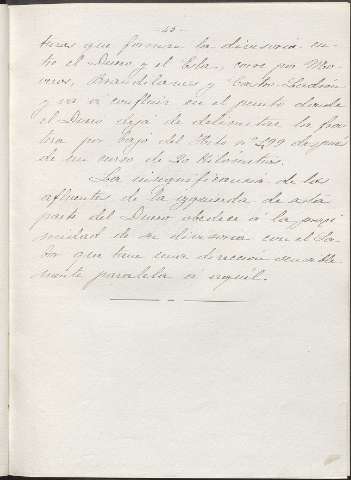 - 45 -
turas que forman la divisoria en-
tre el Duero y el Esla, corre por Mo-
veros, Brandilanes y Castro Ladrón
y va á confluir en el punto donde
el Duero deja de delimitar la fron-
tera por bajo del Hito nº 499 después
de un curso de 20 kilómetros.
La insignificancia de los
afluentes de la izquierda de esta
parte del Duero obedece á la proxi
midad de su divisoria con el
que tiene una dirección sensible
mente paralela á aquél.